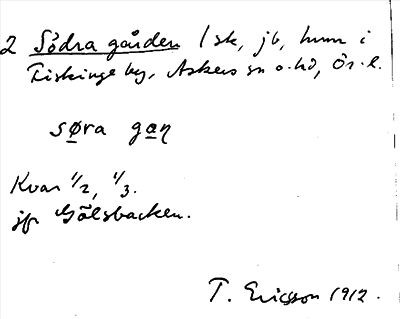 2 Södra gården 1 sk, jb, hmn i
Fiskinge by, Askers sn o. hd, Ör. l.
søra gaṇ
Kvar 1/2, 1/3.
jfr Gölsbacken.
T. Ericsson 1912.